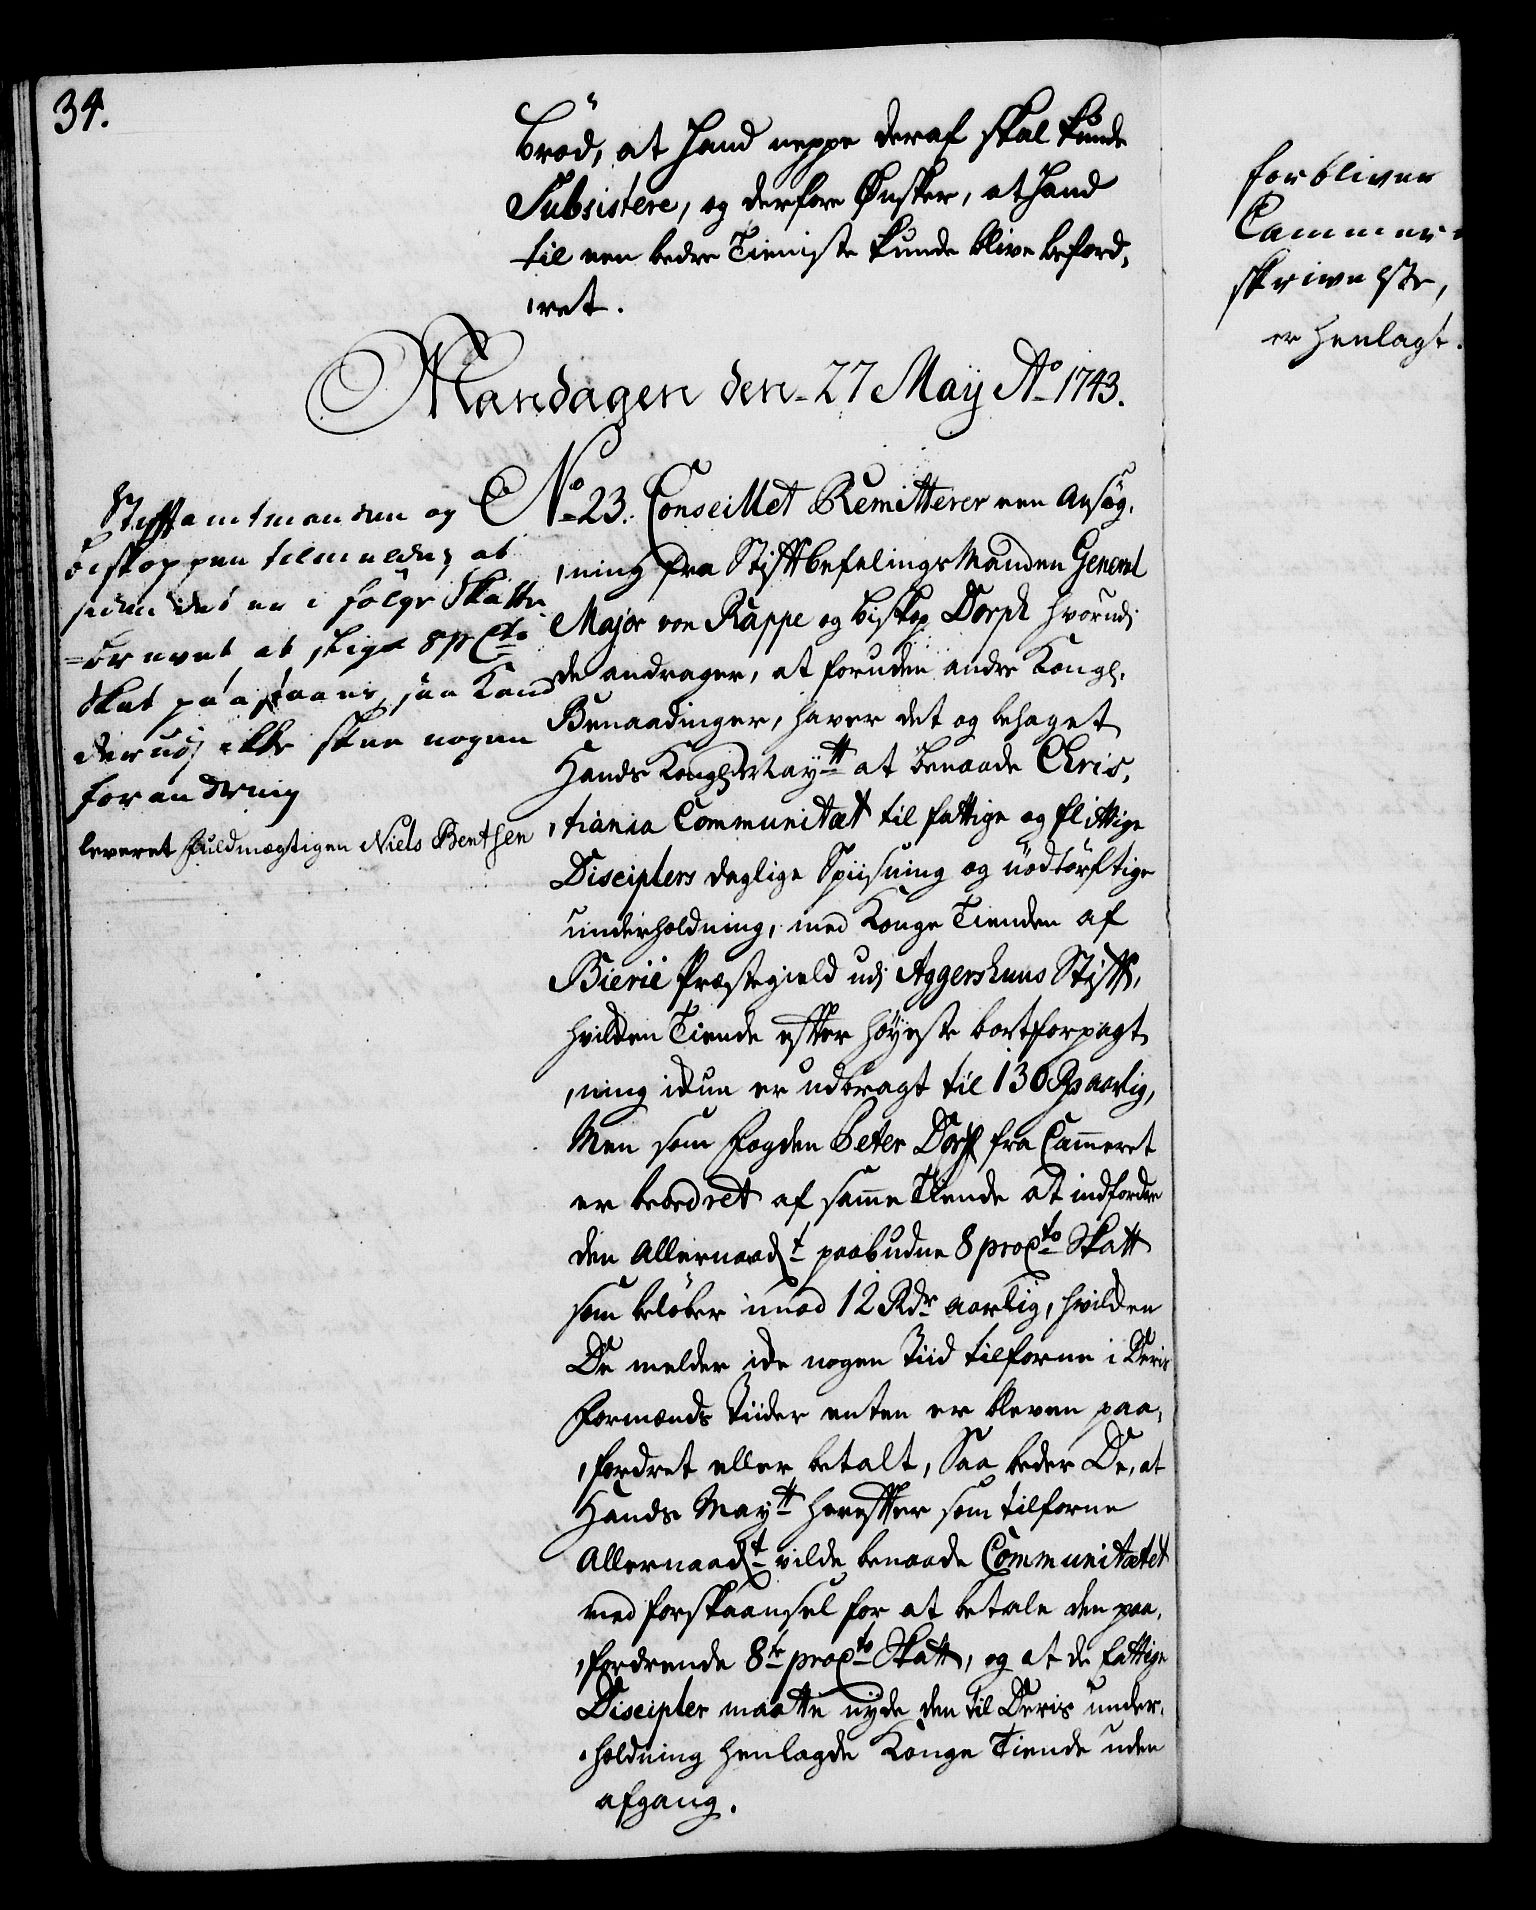 34.
brød, at hand neppe deraf skal kunde
Subsistere, og derfore Ønsker, at hand
til een bedre Tieniste kunde blive beford,
,ret.
Mandagen den 27 Maÿ Ao 1743.
No 23. Conseillet Remitterer een Ansøg,
,ning fra Stiftbefalings Manden General
Major von Rappe og biskop Dorph hvorudj
de andrager, at foruden andre Kongl.
Benaadinger, haver det og behaget
Hands Kongl. Maytt at benaade Chris,
,tiania Communitæt til fattige og flittige
Disciplers daglige Spiisning og nødtørftige
underholdning, med Konge Tienden af
Bierie Præstegield udj Aggershuus Stift,
hvilken Tiende efter høyeste bortforpagt,
,ning icun er udbragt til 130 Rd aarlig,
Men som fogden Peter Dorph fra Cammeret
er beordret af samme Tiende at indfordre
den allernaadst paabudne 8 pro Cto Skatt
som beløber imod 12 Rdr aarlig, hvilken
De melder icke nogen Tiid tilforne i Deris
Formænds Tiider enten er bleven paa,
,fordret eller betalt, Saa beder De, at
Hands Maytt herefter som tilforne
Allernaadst vilde benaade Communitætet
med forskaansel for at betale den paa,
,fordrende 8te pro Cto Skatt, og at de fattige
Discipler maatte nyde den til Deris under,
,holdning henlagde Konge Tiende uden
afgang.
Stiftamtmanden og
biskoppen tilmeldes at
siden det er i følge Skatte
=brevet at slige 8 pr Cto
Skat paastaaes, saa kand
derudj icke skee nogen
forandring
leveret fuldmægtigen Niels Bentsen
forbliver
Cammer-
skrivelse,
er henlagt.